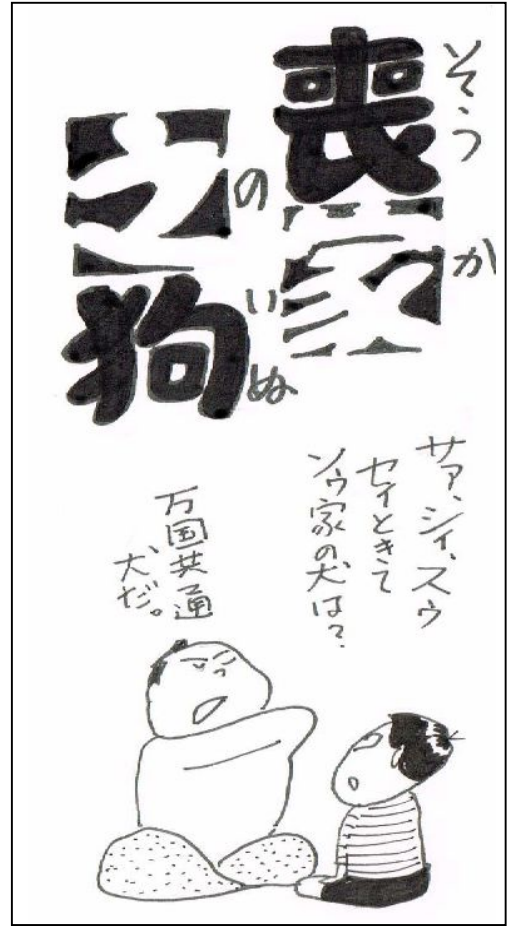 喪家
そうか
之狗
のいぬ
サア、シイ、スウ
セイときて
ソウ家の犬は？
万国共通
犬だ。